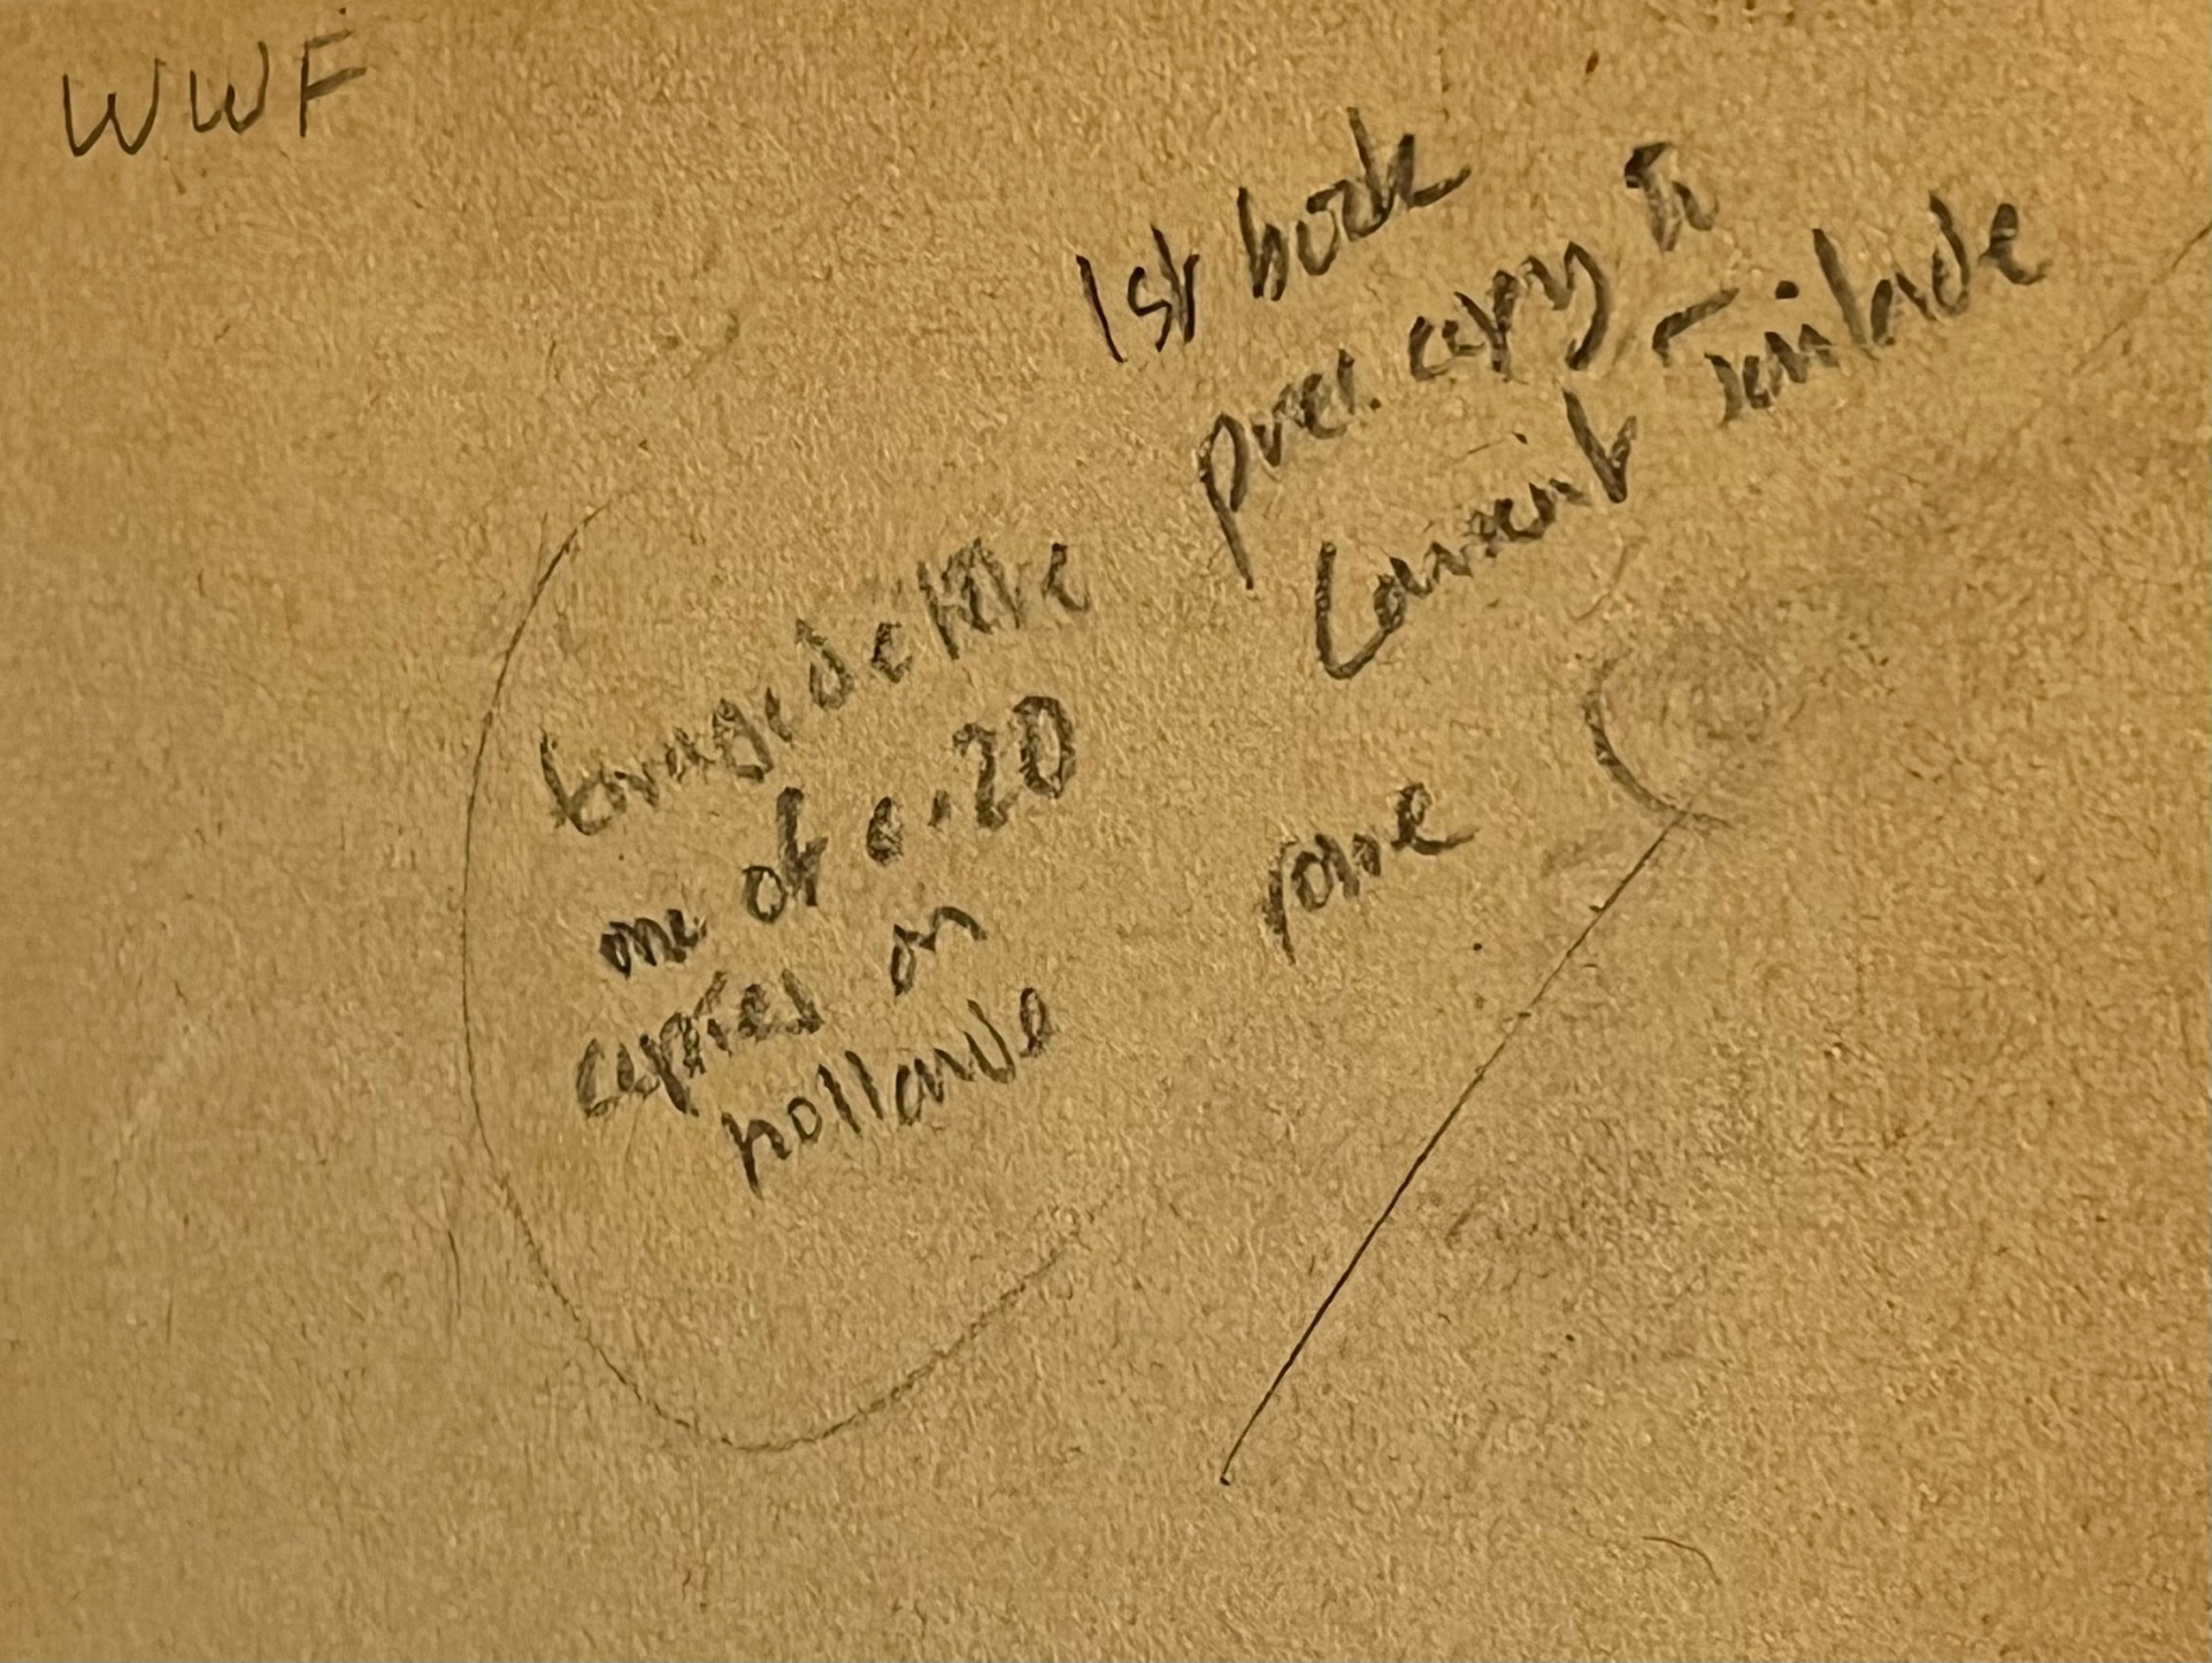 WWF
1st book
pres. copy to
Laurent Tailhade
tirage de tête
one of c.20
copies on
hollande
rare